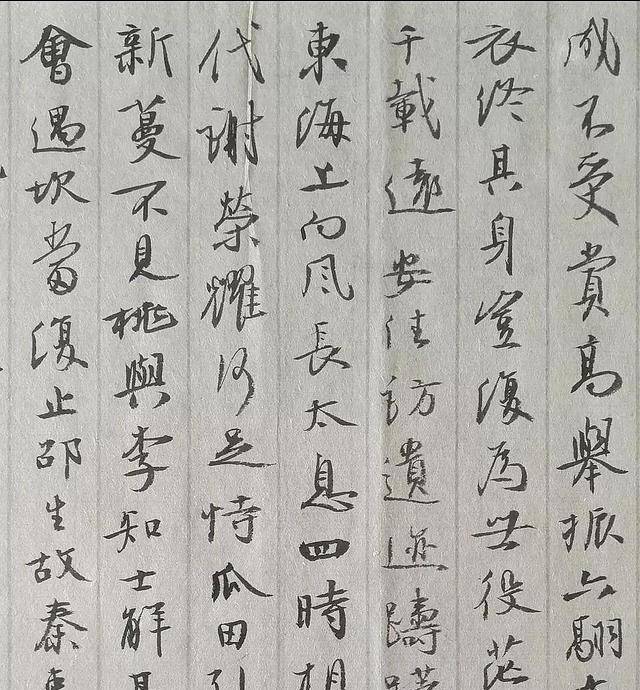 成不受賞高舉振六翮
衣終其身寧復為世役茫
千載遠安住訪遺迹躊躇
東海上向風長太息四時相
代謝榮耀何足恃瓜田引
新蔓不見桃與李知士解其
會遇坎當復止邵生故秦東